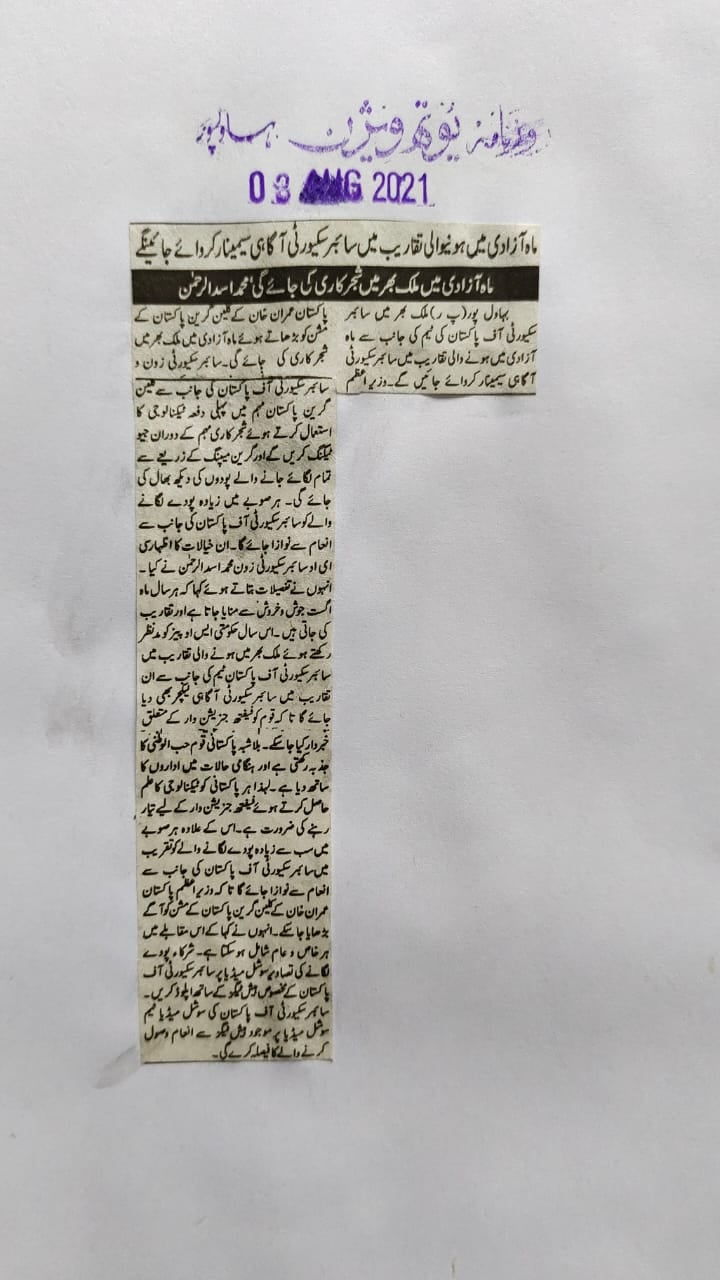 روزنامہ یوتھ ویژن بہاولپور
03 AUG 2021
ماہ آزادی میں ہونیوالی تقاریب میں سائبر سکیورٹی آگاہی سیمینار کروائے جائینگے
ماہ آزادی میں ملک بھر میں شجر کاری کی جائے گی، محمد اسد الرحمٰن
بہاول پور (پ ر) ملک بھر میں سائبر
سکیورٹی آف پاکستان کی ٹیم کی جانب سے ماہ
آزادی میں ہونے والی تقاریب میں سائبر سکیورٹی
آگاہی سیمینار کروائے جائیں گے۔ وزیر اعظم
پاکستان عمران خان کے کلین گرین پاکستان کے
مشن کو بڑھاتے ہوئے ماہ آزادی میں ملک بھر میں
شجر کاری کی جائے گی۔ سائبر سکیورٹی زون و
سائبر سکیورٹی آف پاکستان کی جانب سے کلین
گرین پاکستان مہم میں پہلی دفعہ ٹیکنالوجی کا
استعمال کرتے ہوئے شجر کاری مہم کے دوران جیو
ٹیگنگ کریں گے اور گرین میپنگ کے زریعے سے
تمام لگائے جانے والے پودوں کی دیکھ بھال کی
جائے گی۔ ہر صوبے میں زیادہ پودے لگانے
والے کو سائبر سکیورٹی آف پاکستان کی جانب سے
انعام سے نوازا جائے گا۔ ان خیالات کا اظہار سی
ای او سائبر سکیورٹی زون محمد اسد الرحمٰن نے کیا۔
انہوں نے تفصیلات بتاتے ہوئے کہا کہ ہر سال ماہ
اگست جوش و خروش سے منایا جاتا ہے اور تقاریب
کی جاتی ہیں۔ اس سال حکومتی ایس او پیز کو مدنظر
رکھتے ہوئے ملک بھر میں ہونے والی تقاریب میں
سائبر سکیورٹی آف پاکستان ٹیم کی جانب سے ان
تقاریب میں سائبر سکیورٹی آگاہی لیکچر بھی دیا
جائے گا تا کہ قوم کو ففتھ جنریشن وار کے متعلق
خبردار کیا جا سکے۔ بلاشبہ پاکستانی قوم حب الوطنی کا
جذبہ رکھتی ہے اور ہنگامی حالات میں اداروں کا
ساتھ دیا ہے۔ لہذا ہر پاکستانی کو ٹیکنالوجی کا علم
حاصل کرتے ہوئے ففتھ جنریشن وار کے لیے تیار
رہنے کی ضرورت ہے۔ اس کے علاوہ ہر صوبے
میں سب سے زیادہ پودے لگانے والے کو تقریب
میں سائبر سکیورٹی آف پاکستان کی جانب سے
انعام سے نوازا جائے گا تا کہ وزیر اعظم پاکستان
عمران خان کے کلین گرین پاکستان کے مشن کو آگے
بڑھایا جا سکے۔ انہوں نے کہا کے اس مقابلے میں
ہر خاص و عام شامل ہو سکتا ہے۔ شرکاء پودے
لگانے کی تصاویر سوشل میڈیا پر سائبر سکیورٹی آف
پاکستان کے مخصوص ہیش ٹیگز کے ساتھ اپلوڈ کریں۔
سائبر سکیورٹی آف پاکستان کی سوشل میڈیا ٹیم
سوشل میڈیا پر موجود ہیش ٹیگز سے انعام وصول
کرنے والے کا فیصلہ کرے گی۔